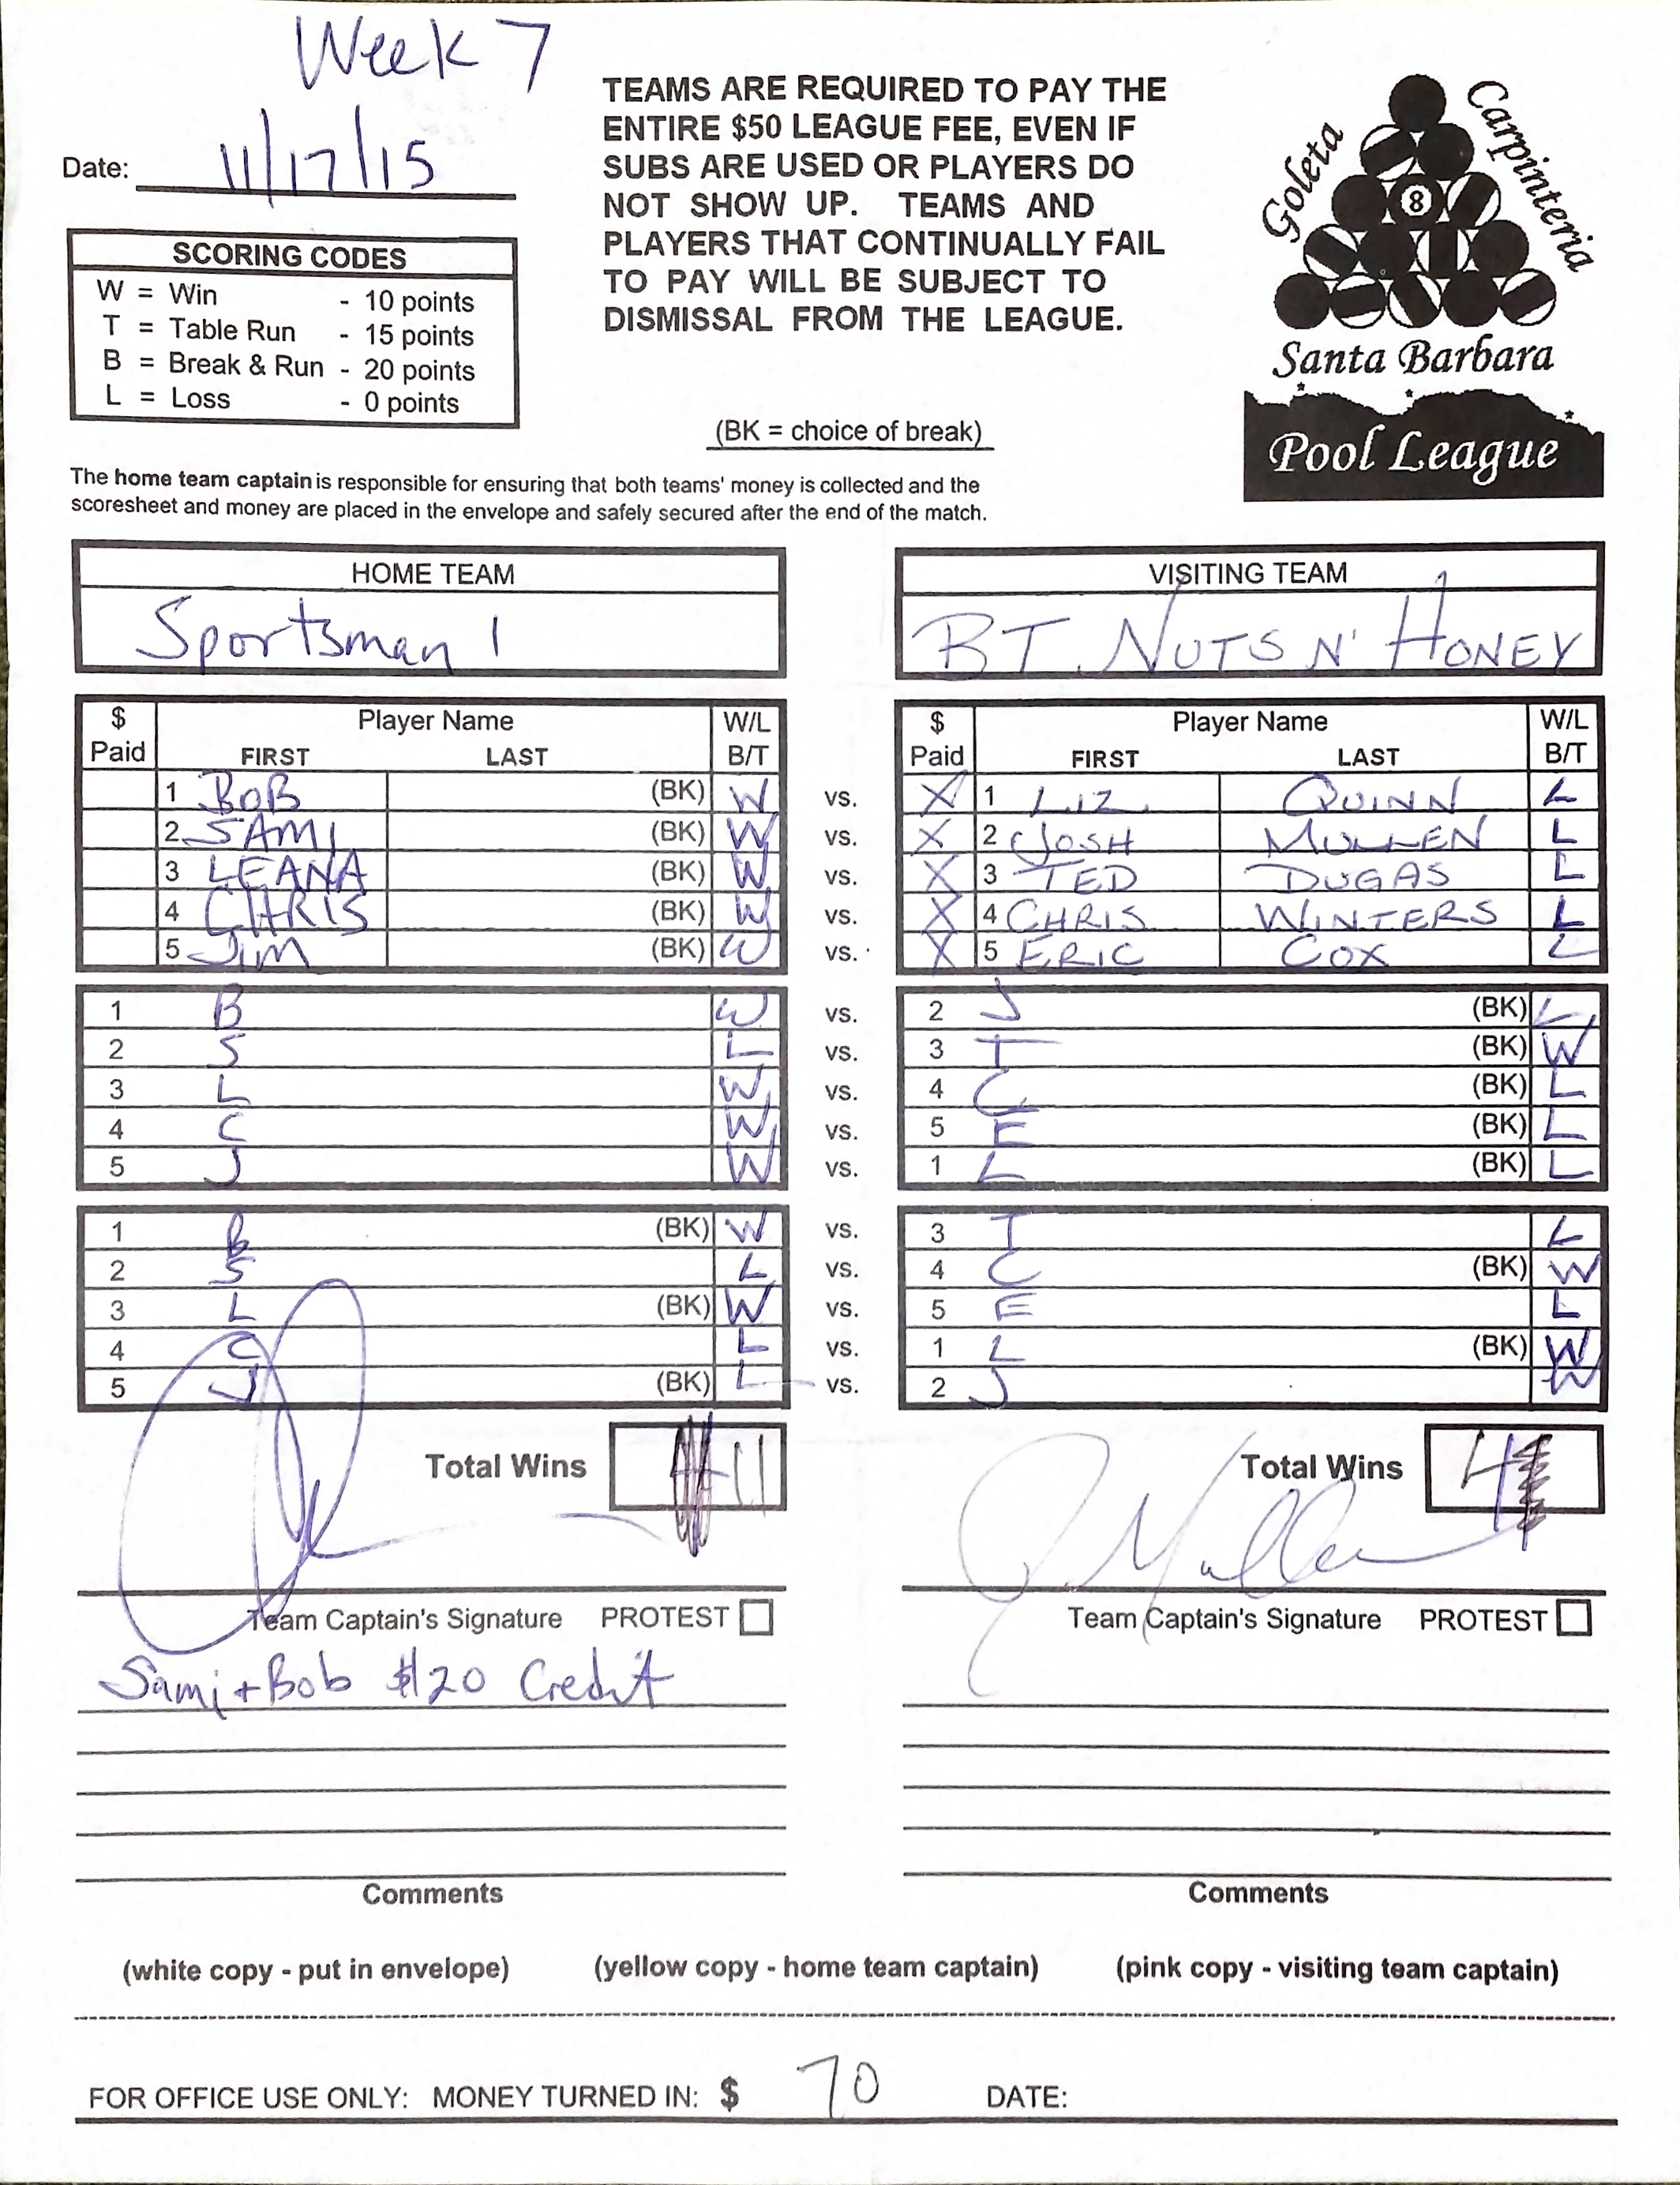 Week 7
Date: 11/17/15
SCORING CODES
W = Win - 10 points
T = Table Run - 15 points
B = Break & Run - 20 points
L = Loss - 0 points
TEAMS ARE REQUIRED TO PAY THE
ENTIRE $50 LEAGUE FEE, EVEN IF
SUBS ARE USED OR PLAYERS DO
NOT SHOW UP. TEAMS AND
PLAYERS THAT CONTINUALLY FAIL
TO PAY WILL BE SUBJECT TO
DISMISSAL FROM THE LEAGUE.
(BK = choice of break)
Goleta
Carpinteria
8
Santa Barbara
Pool League
The home team captain is responsible for ensuring that both teams' money is collected and the
scoresheet and money are placed in the envelope and safely secured after the end of the match.
HOME TEAM VISITING TEAM
Sportsman 1 BT. NUTS N' HONEY
$ Player Name W/L $ Player Name W/L
Paid FIRST LAST B/T Paid FIRST LAST B/T
1 BOB (BK) W vs. X 1 LIZ QUINN L
2 SAMI (BK) W vs. X 2 JOSH MULLEN L
3 LEANA (BK) W vs. X 3 TED DUGAS L
4 CHRIS (BK) W vs. X 4 CHRIS WINTERS L
5 JIM (BK) W vs. X 5 ERIC COX L
1 B W vs. 2 J (BK) L
2 S L vs. 3 T (BK) W
3 L W vs. 4 C (BK) L
4 C W vs. 5 E (BK) L
5 J W vs. 1 L (BK) L
1 B (BK) W vs. 3 T L
2 S L vs. 4 C (BK) W
3 L (BK) W vs. 5 E L
4 C L vs. 1 L (BK) W
5 J (BK) L vs. 2 J W
Total Wins 11 Total Wins 4
J Mullen
Team Captain's Signature PROTEST Team Captain's Signature PROTEST
Sami + Bob $20 Credit
Comments Comments
(white copy - put in envelope) (yellow copy - home team captain) (pink copy - visiting team captain)
FOR OFFICE USE ONLY: MONEY TURNED IN: $ 70 DATE: